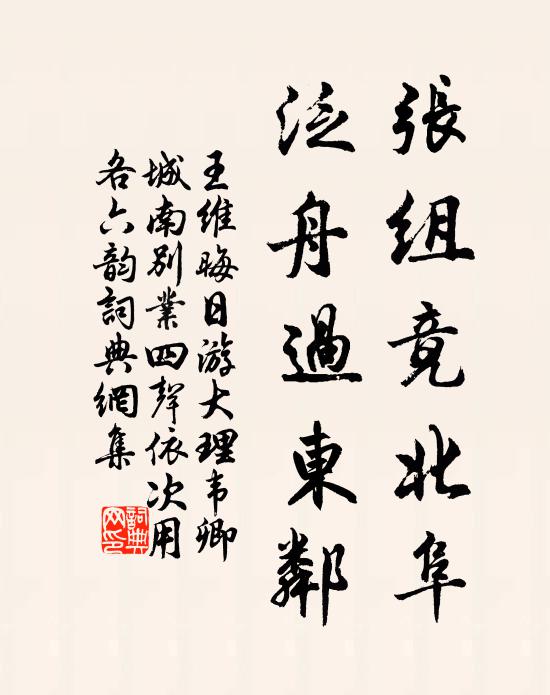 張組竟北阜
泛舟過東鄰
王維晦日游大理韦卿
城南別業四聲依次用
各六韵詞典網集
詞典網印